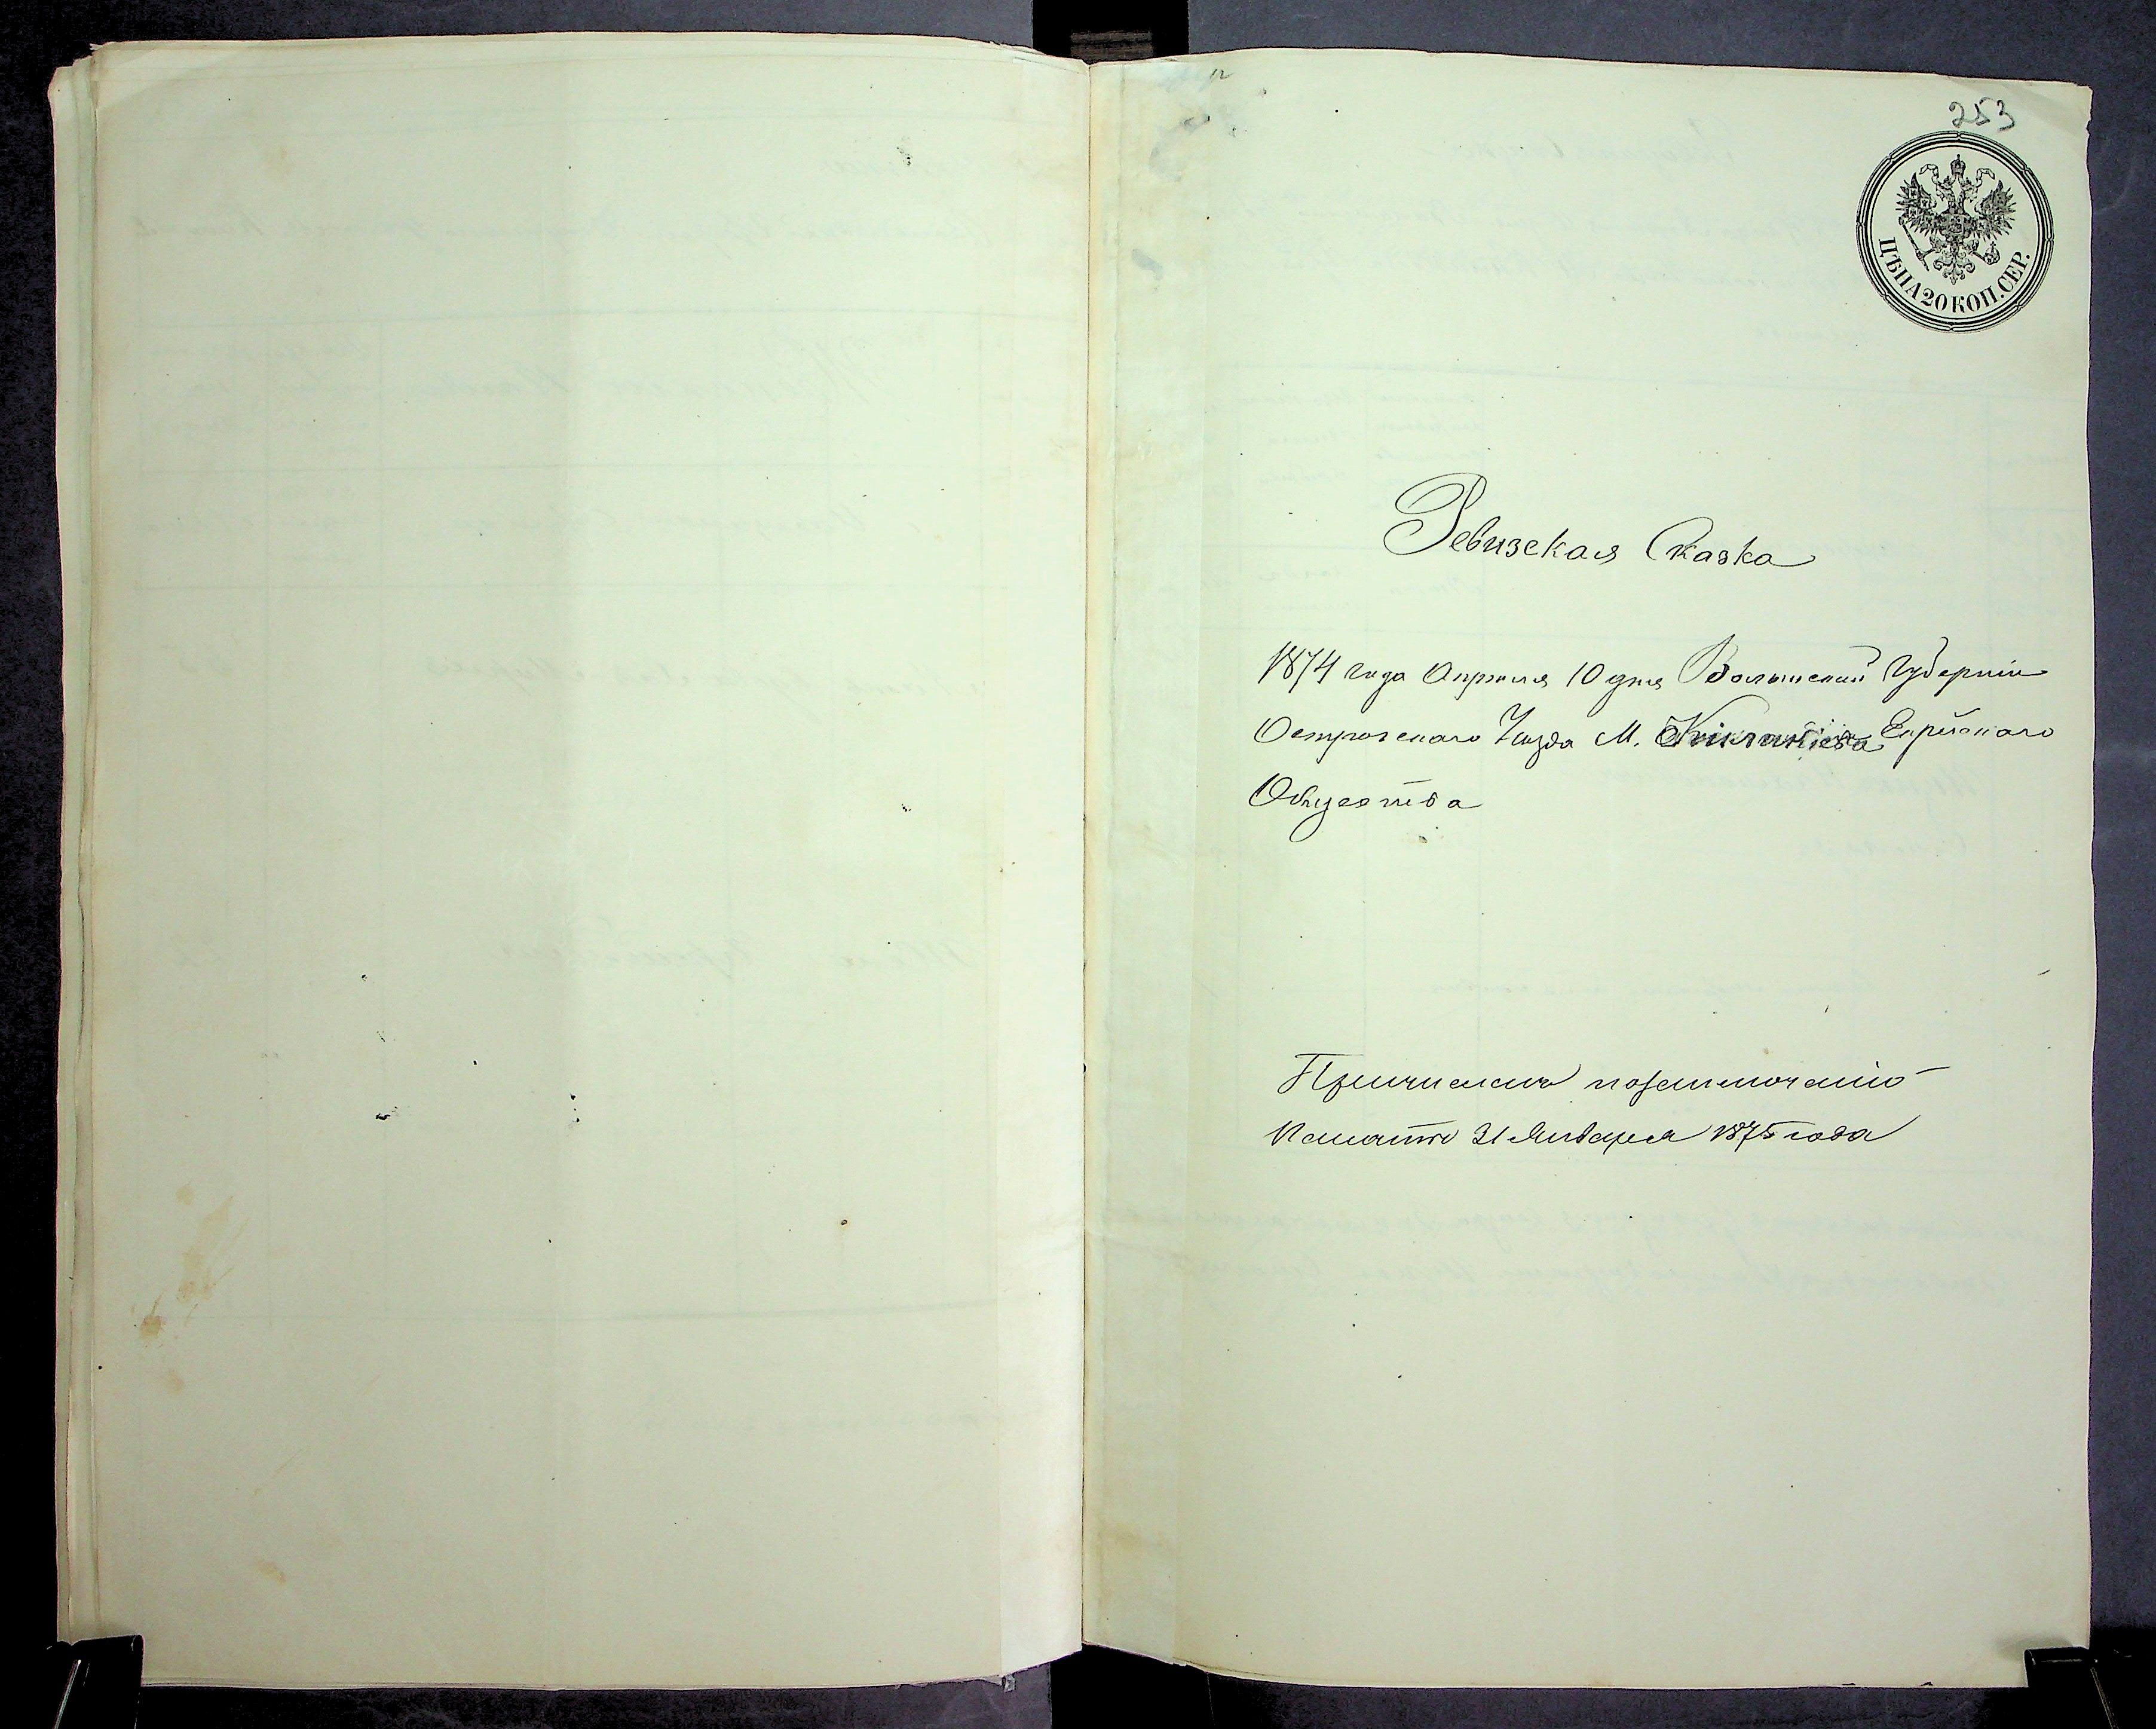 253
ЦѢНА 20 КОП. СЕР.
Ревизская Сказка
1874 года Апреля 10 дня Волынской Губернии
Острогскаго Уезда М. Еврейскаго
Общества
Причислены
Палаты 31 Января 1875 года